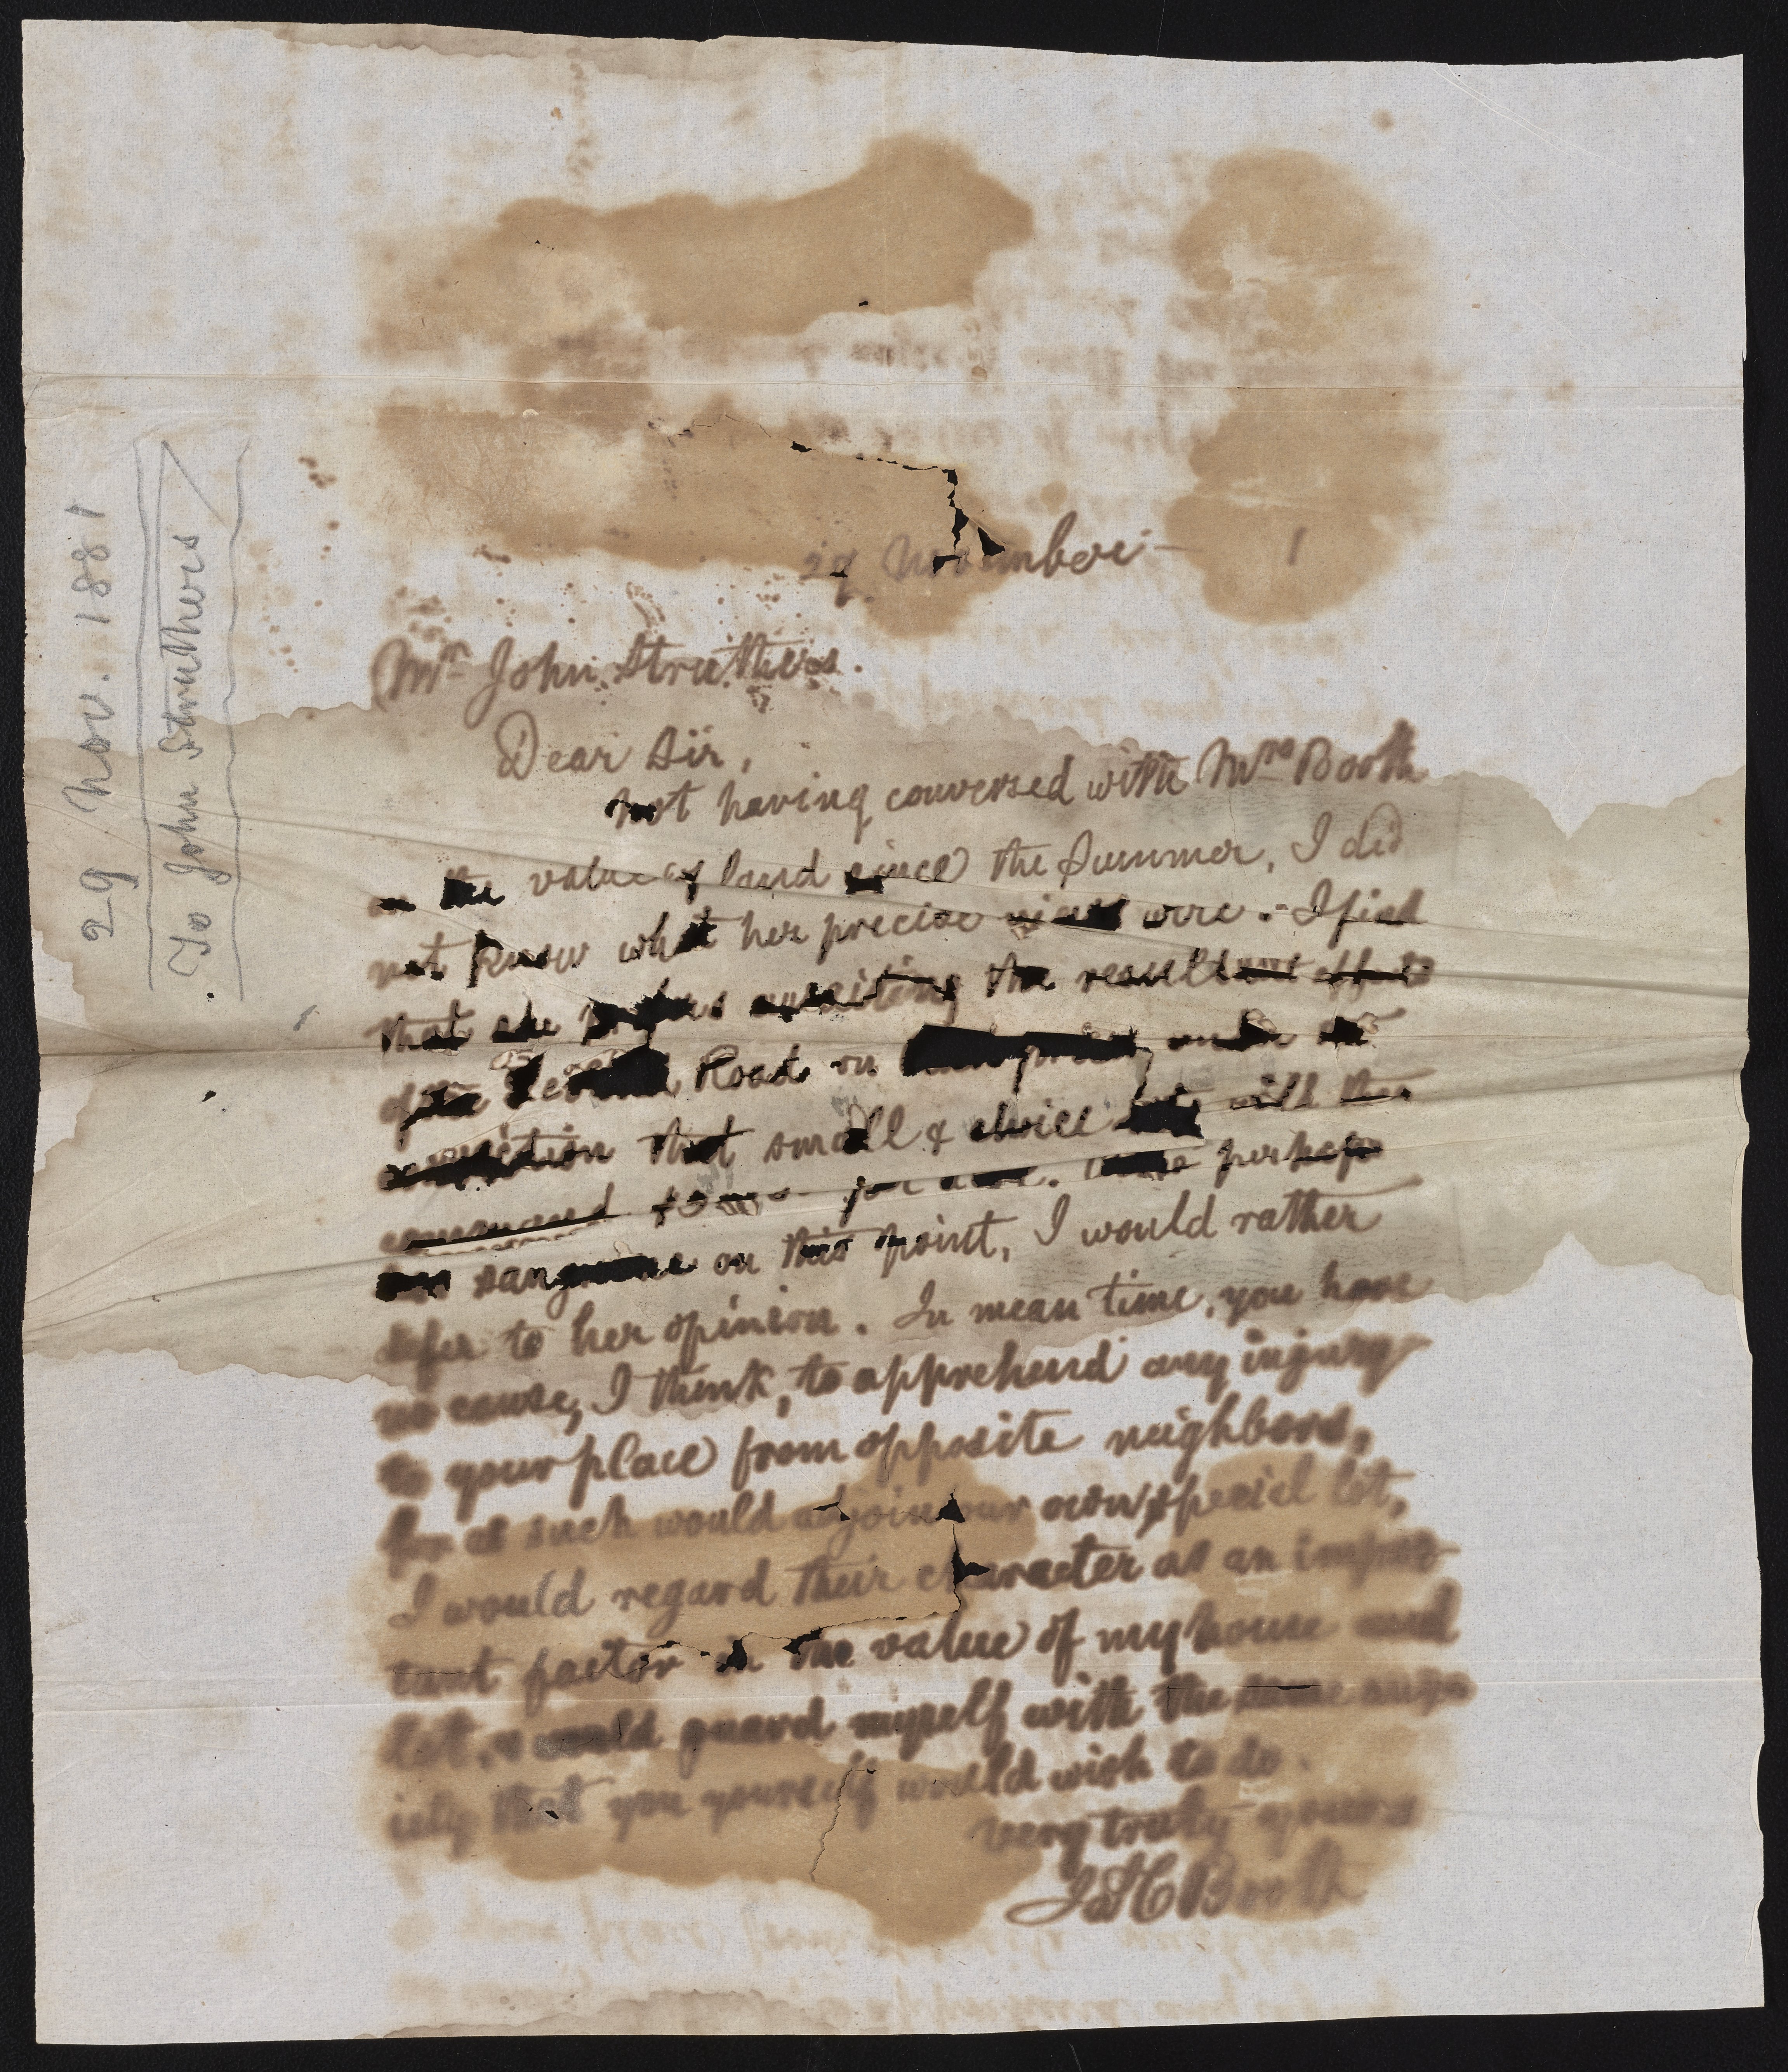 29 Nov. 1881
To John Struthers
29 November — 1
Mr. John Struthers.
Dear Sir,
Not having conversed with Mrs Booth
on the value of land since the Summer, I did
not know what her precise views were. - I find
that she awaiting the resultant effect
of the Road on under the
that small & choice will then
command per acre. perhaps
sanguine on this point, I would rather
defer to her opinion. In mean time, you have
no cause, I think, to apprehend any injury
to your place from opposite neighbors,
for as such would adjoin our own special lot,
I would regard their character as an impor-
tant factor in the value of my house and
lot, & would guard myself with the same anx-
iety that you yourself would wish to do.
Very truly yours
Jas C Booth